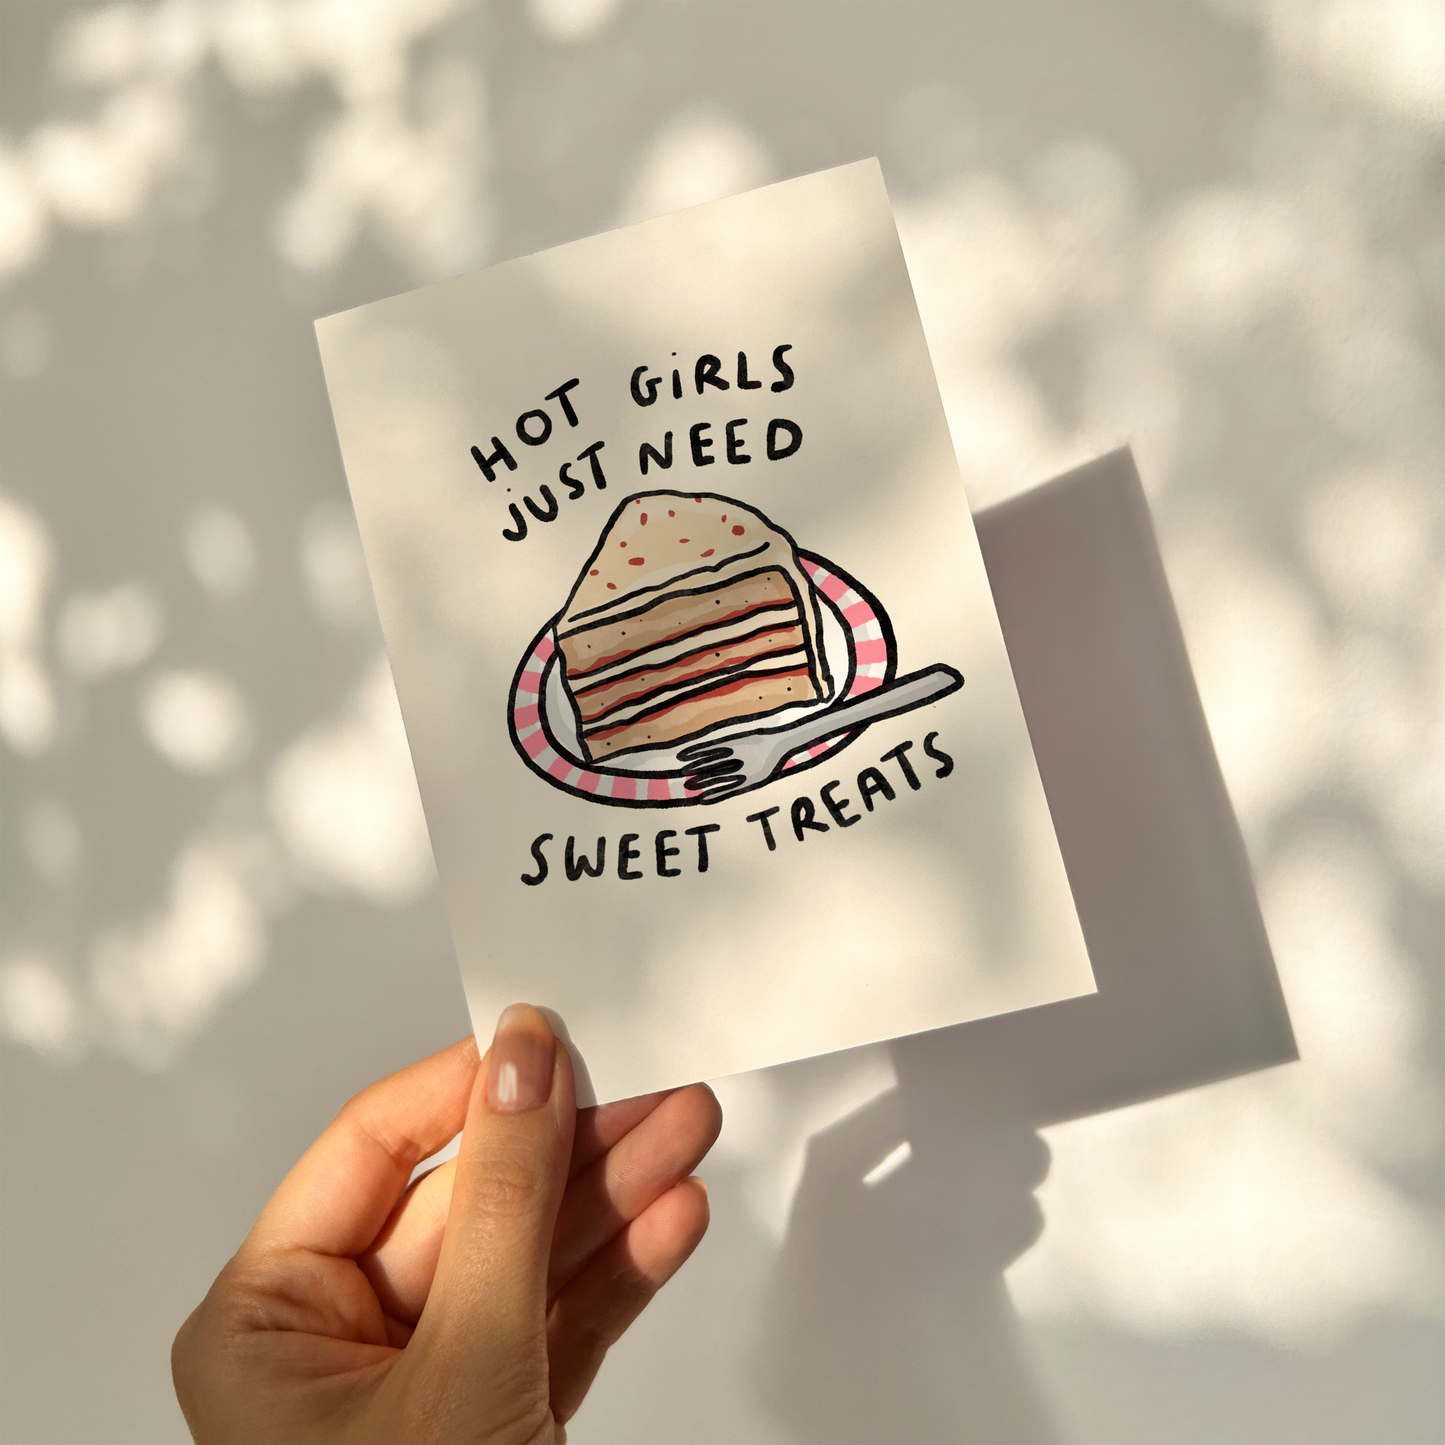 HOT GiRLS
jUST NEED
SWEET TREATS